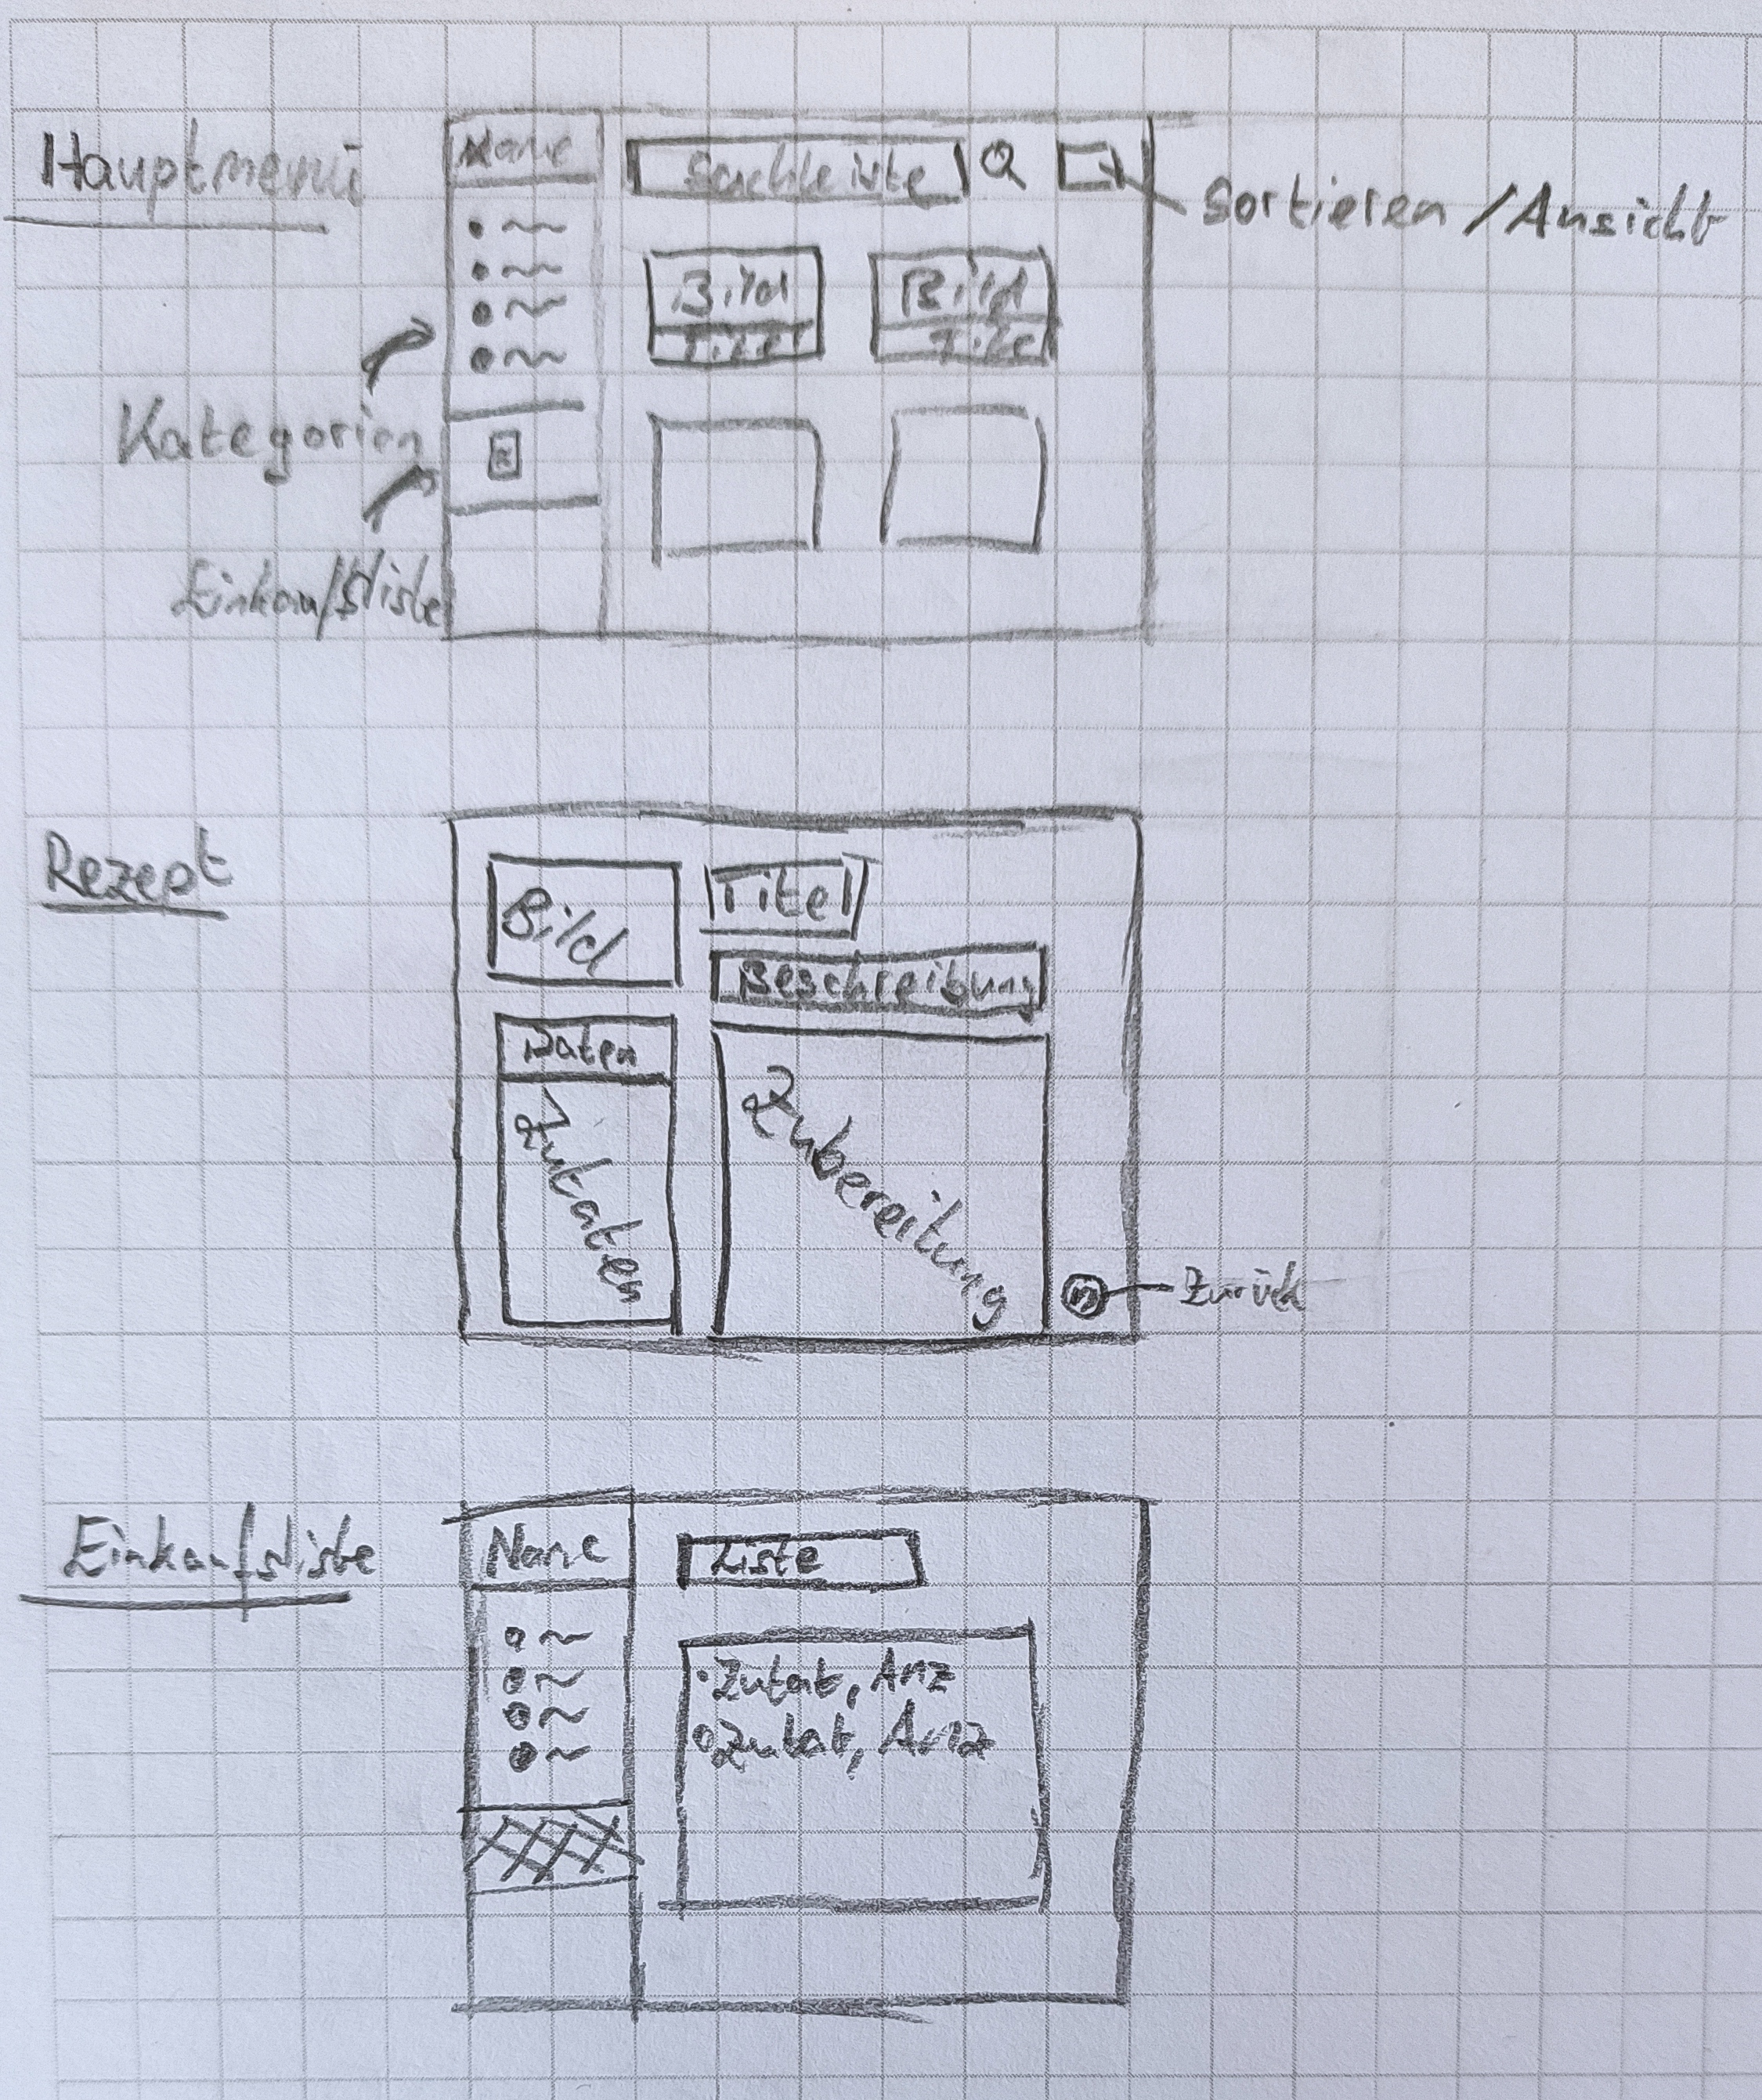 Hauptmenü
Name
Suchleiste
Sortieren / Ansicht
Bild
Titel
Bild
Titel
Kategorien
Einkaufsliste
Rezept
Bild
Titel
Beschreibung
Daten
Zutaten
Zubereitung
Zurück
Einkaufsliste
Name
Liste
Zutat, Anz
Zutat, Anz